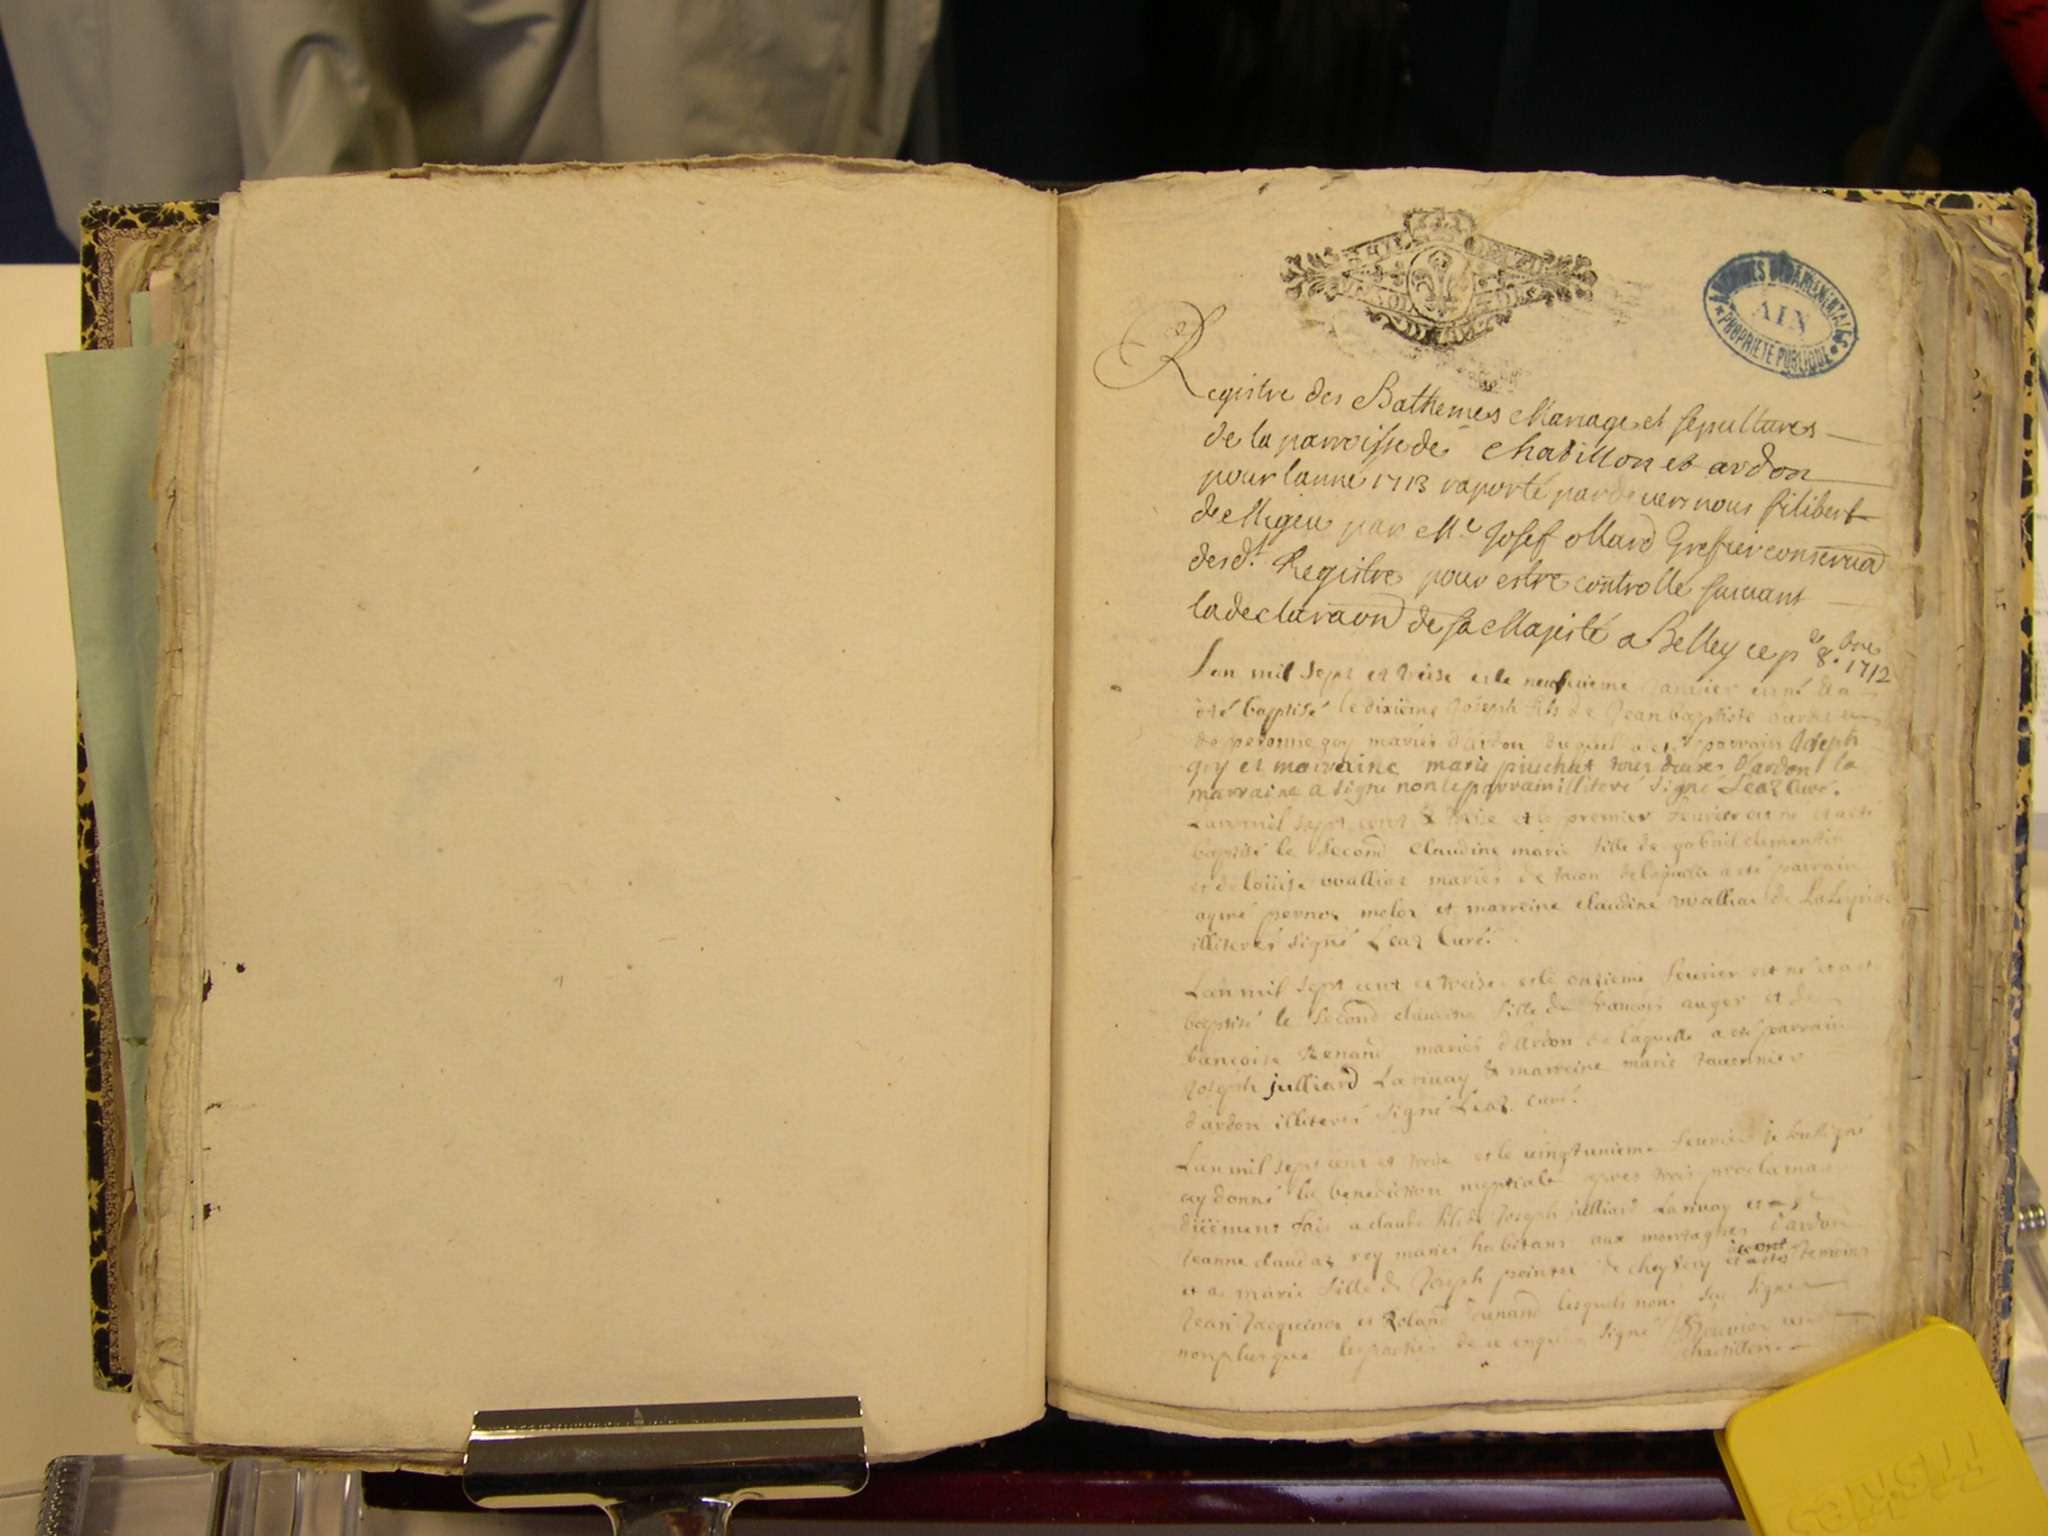 ARCHIVES DEPARTEMENTALES
AIN
PROPRIETE PUBLIQUE
Registre des Bathemes Mariage et sepultures
de la parroisse de Chatillon et ardon
pour lanné 1713 raporté pardevers nous filibert
de Migieu par Me Josef ollard Greffier conservad
desd. Registre pour estre controllé suivant
la declaraon de sa Majesté a Belley ce pe 8bre 1712
Lan mil sept et treise et le neufvieme janvier est né & a
été baptisé le dixième Joseph fils de Jean baptiste
de peronne goy mariés d'Ardon duquel a été parrain Joseph
goy et marraine marie piuchut tous deux d'ardon la
marraine a signé non le parrain illiteré signé Leaz Curé.
Lan mil sept cent & treise et le premier feuvrier est né et a été
baptisé le second Claudine marie fille de clementin
et de loüise vuallier mariés de tacon de laquelle a été parrain
aymé pernoz meloz et marreine claudine vuallier de
illiterés signé Leaz Curé.
Lan mil sept cent et treise et le onsieme feuvrier est né et a été
baptisé le second claudine fille de francois auger et de
francoise Renand mariés d'Ardon de laquelle a été parrain
Joseph julliard Laruay & marreine marie tavernier
d'ardon illiterés signé Leaz curé.
Lan mil sept cent et treise et le vingtunieme feuvrier je soussigné
ay donné la benediction nuptiale apres trois proclama
düement fais a claude fils de Joseph julliard Laruay et de
Jeanne claudaz rey mariés habitans aux montagnes d'ardon
et a marie fille de Joseph peintre de cheysery temoins
Jean Jacquinoz et Roland Renand lesquels nont sçu signer
non plus que les parties de ce enquis signé Bouvier curé
chatillon.